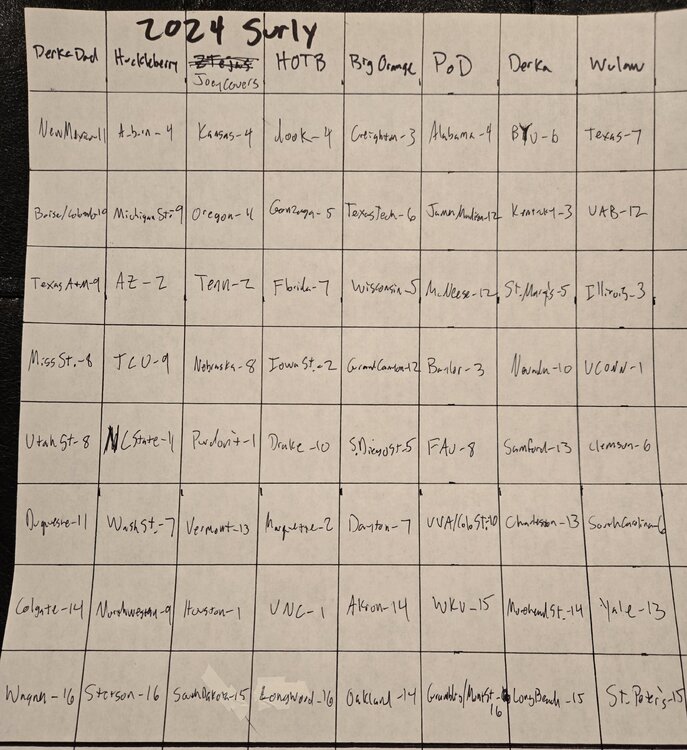 2024 Surly
Derka Dad Huckleberry ZTejas HOTB Big Orange PoD Derka Wulaw
JoeyCovers
New Mexico-11 Auburn-4 Kansas-4 Dook-4 Creighton-3 Alabama-4 BYU-6 Texas-7
Boise/Colorado-10 Michigan St.-9 Oregon-4 Gonzaga-5 Texas Tech-6 James Madison-12 Kentucky-3 UAB-12
Texas A+M-9 AZ-2 Tenn-2 Florida-7 Wisconsin-5 McNeese-12 St. Mary's-5 Illinois-3
Miss St.-8 TCU-9 Nebraska-8 Iowa St.-2 Grand Canyon-12 Baylor-3 Nevada-10 UCONN-1
Utah St-8 NC State-4 Purdon't-1 Drake-10 S. Diego St-5 FAU-8 Samford-13 Clemson-6
Duquesne-11 Wash St.-7 Vermont-13 Marquette-2 Dayton-7 UVA/Colo St-10 Charleston-13 South Carolina-6
Colgate-14 Northwestern-9 Houston-1 UNC-1 Akron-14 WKU-15 Morehead St.-14 Yale-13
Wagner-16 Stetson-16 South Dakota-15 Longwood-16 Oakland-14 Grambling/Mont St- Long Beach-15 St. Peter's-15
16